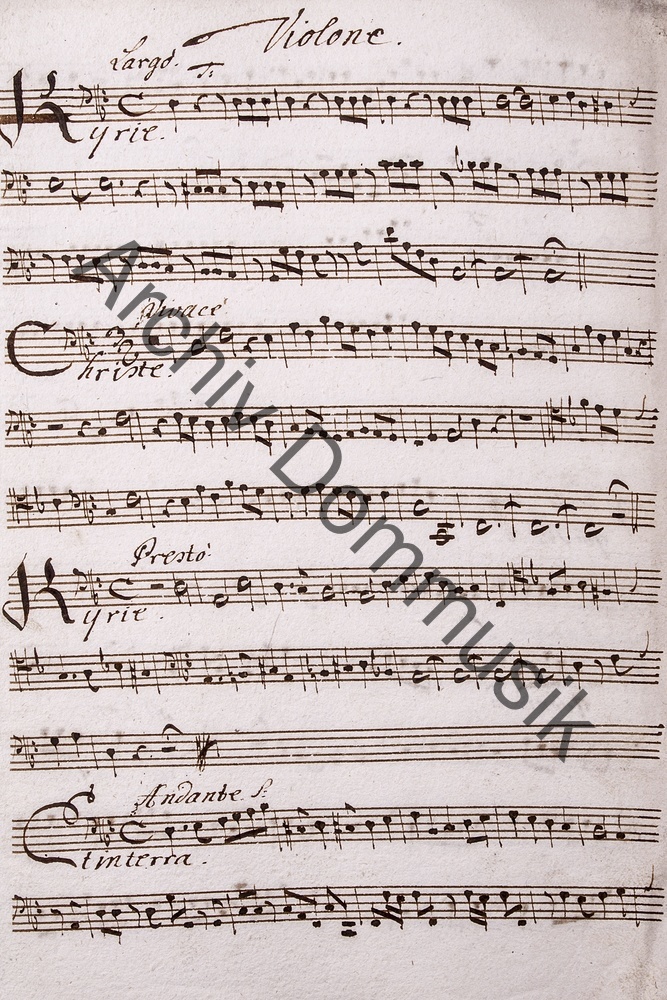 Violone.
Largo.
Kyrie.
Vivace
Christe.
Presto
Kyrie.
Andante
Et in terra.
Archiv Dommusik